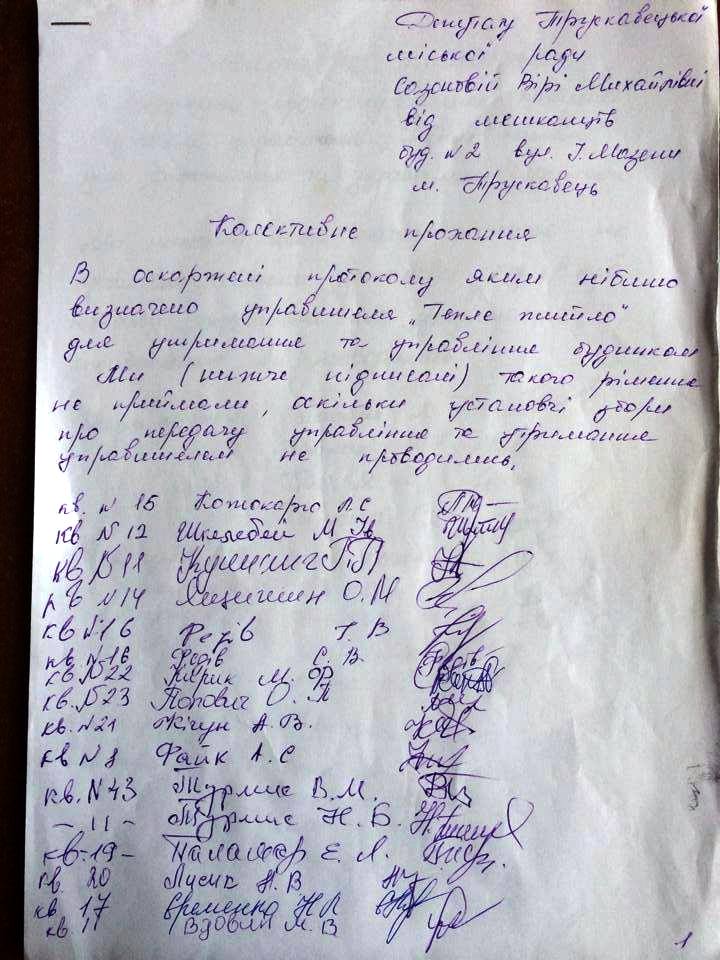 Депутату Трускавецької
міської ради
Созонтвій Вірі Михайлівні
від мешканців
буд. №2 вул. І. Мазепи
м. Трускавець
Колективне прохання
В оскаржені протоколу яким нібито
визначено управителя „Тепле житло"
для утримання та управління будинком
Ми (нижче підписані) такого рішення
не приймали, оскільки установчі збори
про передачу управління та утримання
управителем не проводились.
кв. № 15 Л.С
кв № 12 М Ів
кв. № 11 Г.П
кв № 14 О.М
кв № 16 Федів Г. В
кв. № 16 Федів С. В.
кв. № 22 М.
кв. № 23 Попович О. П
кв. № 21 Жігун А. В.
кв № 8 Файк А. С
кв. № 43 Турлис В. М.
– 11 – Турлис Н. Б.
кв. 19 – Паламар Е. Л.
кв. 20 Лусик Н. В
кв. 17 Єременко Н Л
кв. 11 Вдовин М. В
1